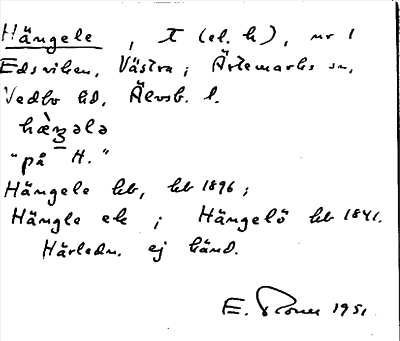 Hängele, T (el. h), nr 1
Edsviken, Västra; Ärtemarks sn,
Vedbo hd, Älvsb. l.
hæ̀ʒələ
"på H."
Hängele hb, hb 1896;
Hängle ek; Hängelö hb 1841.
Härledn. ej känd.
E. 1951